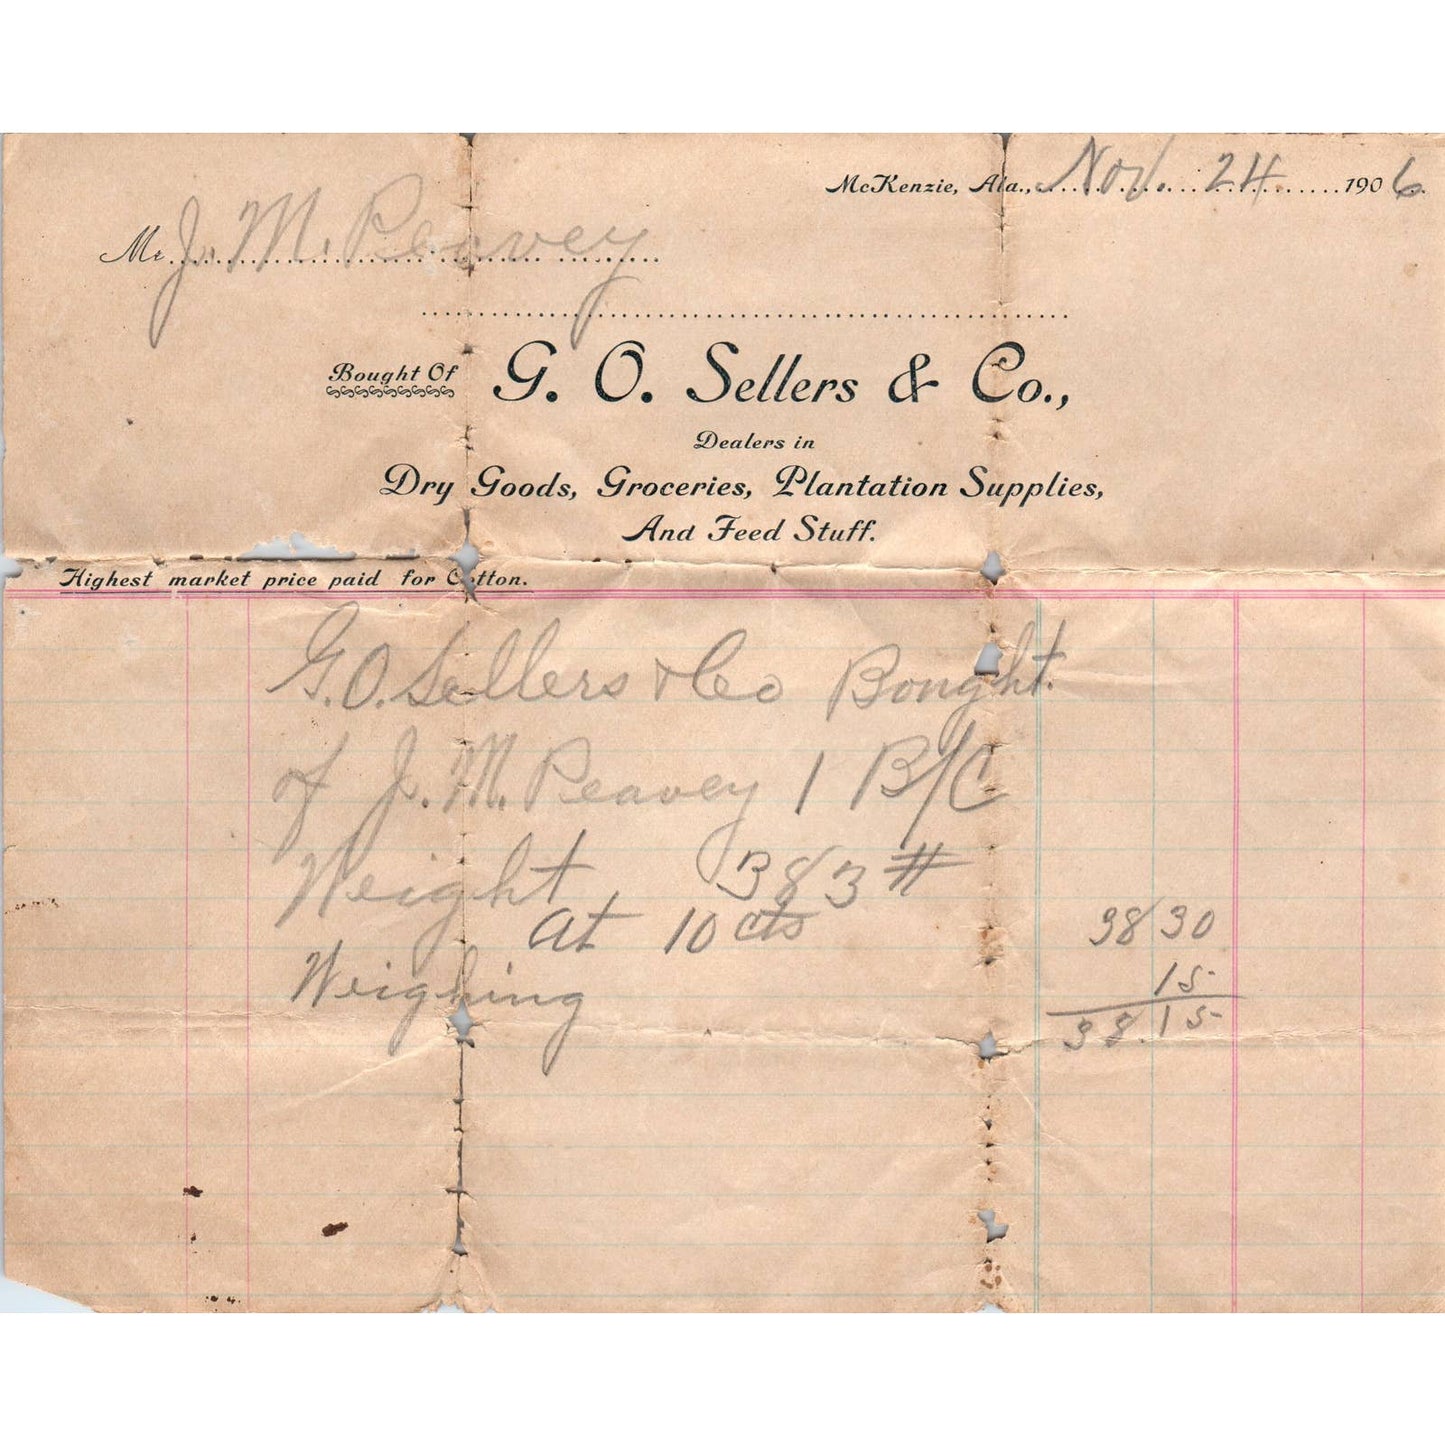 McKenzie, Ala., Nov. 24 1906
Mr. J. M. Peavey
Bought Of G. O. Sellers & Co.,
Dealers in
Dry Goods, Groceries, Plantation Supplies,
And Feed Stuff.
Highest market price paid for Cotton.
G. O. Sellers & Co Bought
of J. M. Peavey 1 B/C
Weight 383 #
at 10 cts 38 30
Weighing 15
38.15